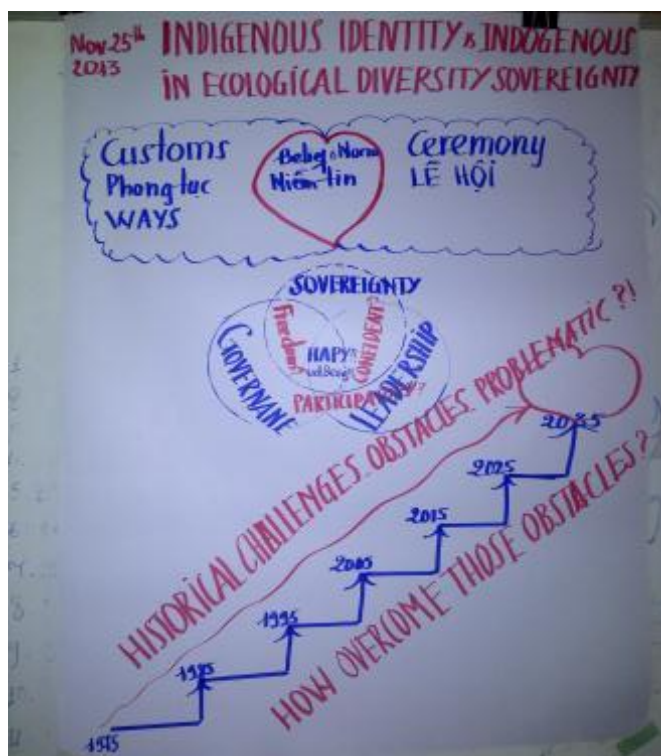 Nov. 25th
2013
INDIGENOUS IDENTITY & INDOGENOUS
IN ECOLOGICAL DIVERSITY SOVEREIGNTY
Customs
Phong tục
WAYS
Niềm tin
Ceremony
LỄ HỘI
SOVEREIGNTY
Freedom
CONFIDENT
HAPY
GOVERNANE
LEADERSHIP
HISTORICAL CHALLENGES. OBSTACLES. PROBLEMATIC?!
HOW OVERCOME THOSE OBSTACLES?
1975
1985
1995
2005
2015
2025
2035